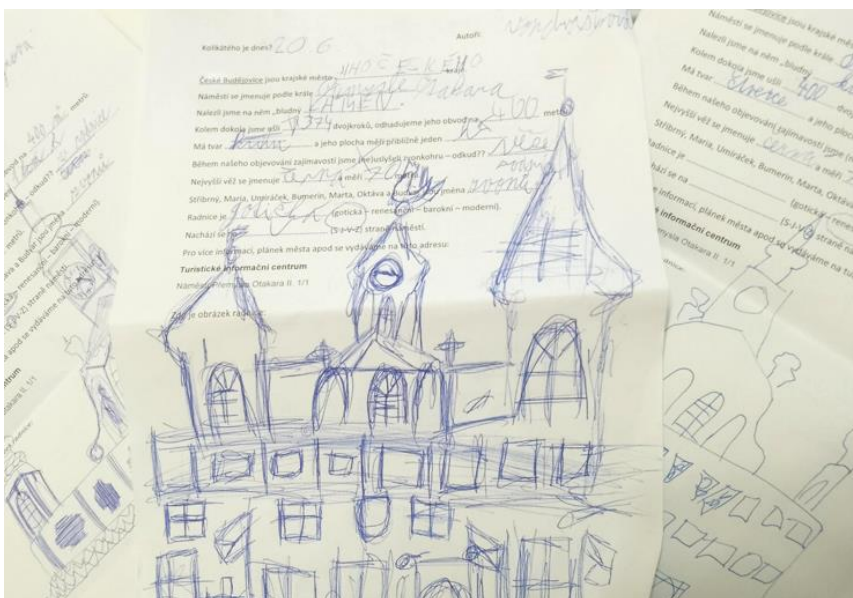 Kolikátého je dnes? 20.6. Autoři:
České Budějovice jsou krajské město JIHOČESKÉHO
Náměstí se jmenuje podle krále Přemysla Otakara
Nalezli jsme na něm „bludný KÁMEN.
Kolem dokola jsme ušli 374 dvojkroků, odhadujeme jeho obvod na 400 metrů
Má tvar a jeho plocha měří přibližně jeden ha
Během našeho objevování zajímavostí jsme (ne)uslyšeli zvonkohru – odkud?? věže
Nejvyšší věž se jmenuje černá a měří 70 metrů
Stříbrný, Maria, Umíráček, Bumerin, Marta, Oktáva a Budvar jsou jména zvonů
Radnice je gotická (gotická – renesanční – barokní – moderní).
Nachází se na (S-J-V-Z) straně náměstí.
Pro více informací, plánek města apod se vydáváme na tuto adresu:
Turistické informační centrum
Náměstí Přemysla Otakara II. 1/1
Zde je obrázek radnice:
400 metrů.
odkud??
metrů.
– barokní – moderní).
straně náměstí.
apod se vydáváme na
centrum
Otakara II. 1/1
radnice:
České Budějovice jsou krajské
Náměstí se jmenuje podle krále
Nalezli jsme na něm „bludný
Kolem dokola jsme ušli 400 dvoj
Má tvar čtverce a jeho plocha
Během našeho objevování zajímavostí jsme
Nejvyšší věž se jmenuje černá a měří
Stříbrný, Maria, Umíráček, Bumerin, Marta, Oktáva
Radnice je (gotická – renes
(S-J-V-Z) straně ná
informací, plánek města apod se vydáváme na tu
informační centrum
Přemysla Otakara II. 1/1